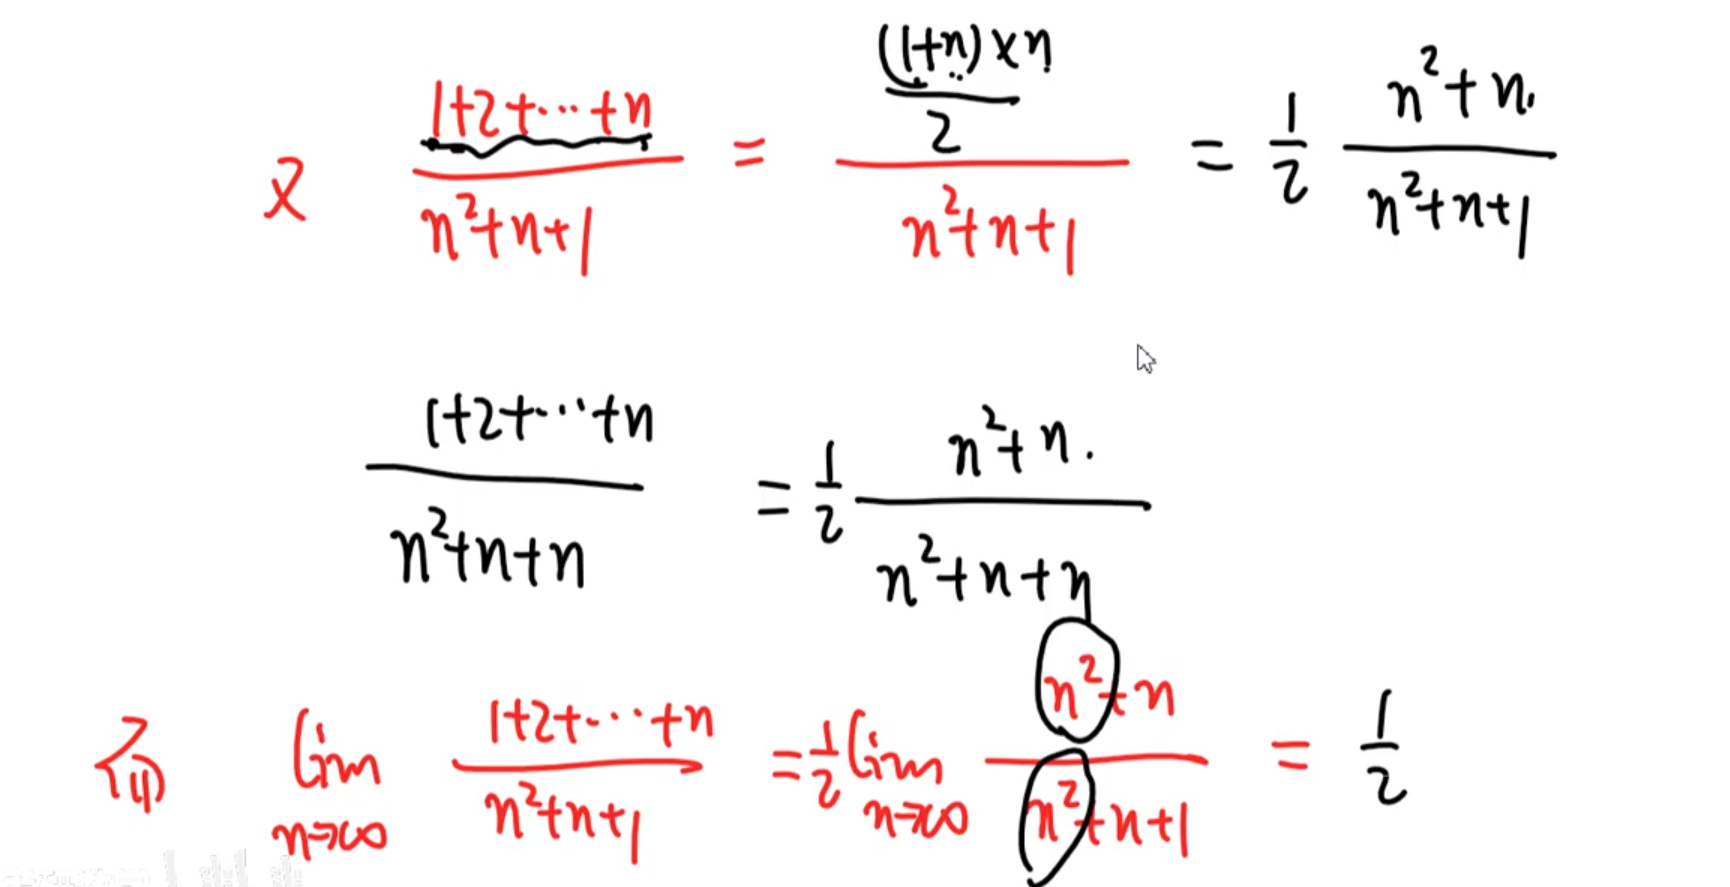 又 (1+2+⋯+n)/(n²+n+1) = ((1+n)×n/2)/(n²+n+1) = 1/2 (n²+n)/(n²+n+1)
(1+2+⋯+n)/(n²+n+n) = 1/2 (n²+n)/(n²+n+n)
而 lim n→∞ (1+2+⋯+n)/(n²+n+1) = 1/2 lim n→∞ (n²+n)/(n²+n+1) = 1/2